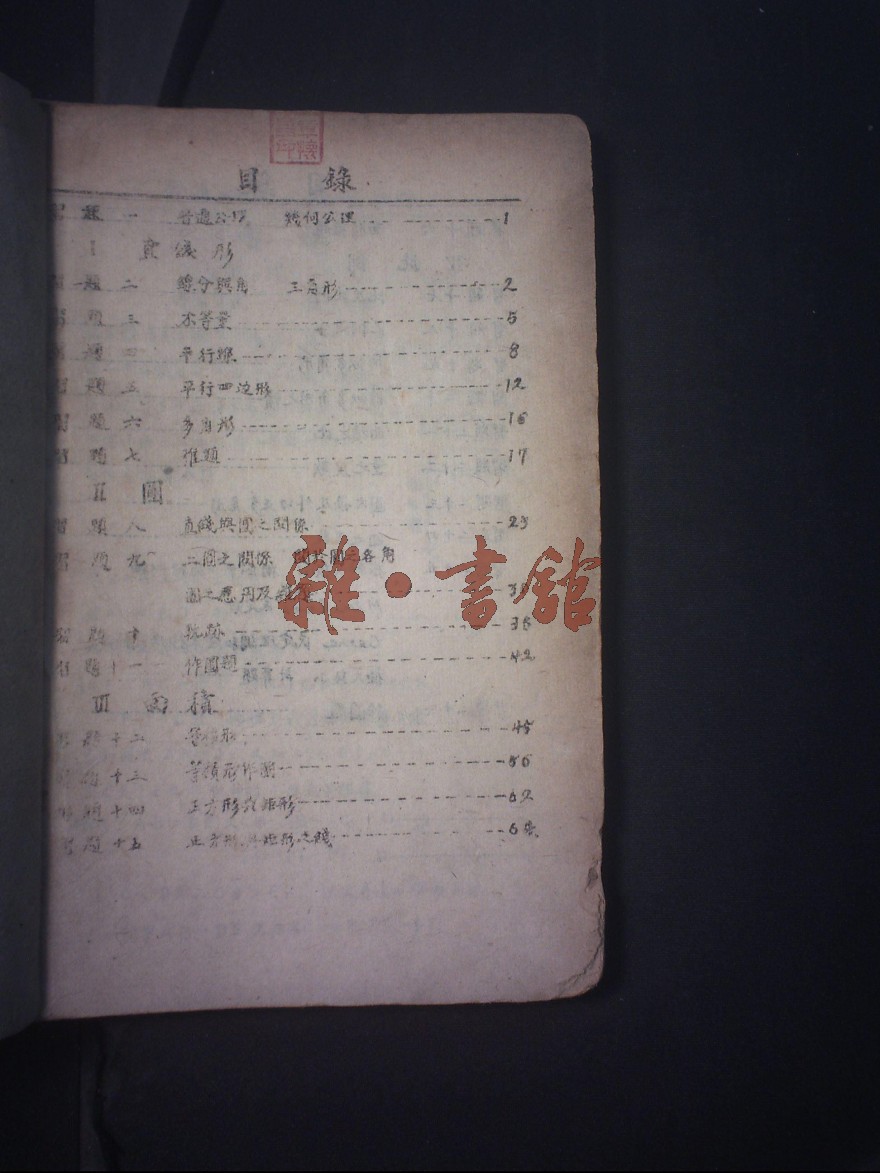 目 錄
習 題 一 普通公理 幾何公理 1
I 直綫形
習 題 二 綫分與角 三角形 2
習 題 三 不等量 5
習 題 四 平行綫 8
習 題 五 平行四边形 12
習 題 六 多角形 16
習 題 七 难題 17
II 圓
習 題 八 直綫與圓之関係 23
習 題 九 二圓之関係 圓之各角
圓之應用及
習 題 十 軌跡 35
習 題 十一 作圖題 42
III 面積
習 題 十二 等積形 45
習 題 十三 等積形作圖 56
習 題 十四 正方形 矩形 62
習 題 十五 正方形 矩形之 6
雜·書館